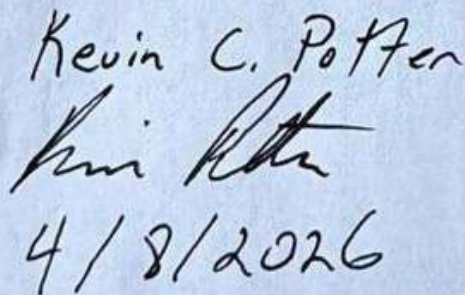 Kevin C. Potter
Kevin Potter
4/8/2026